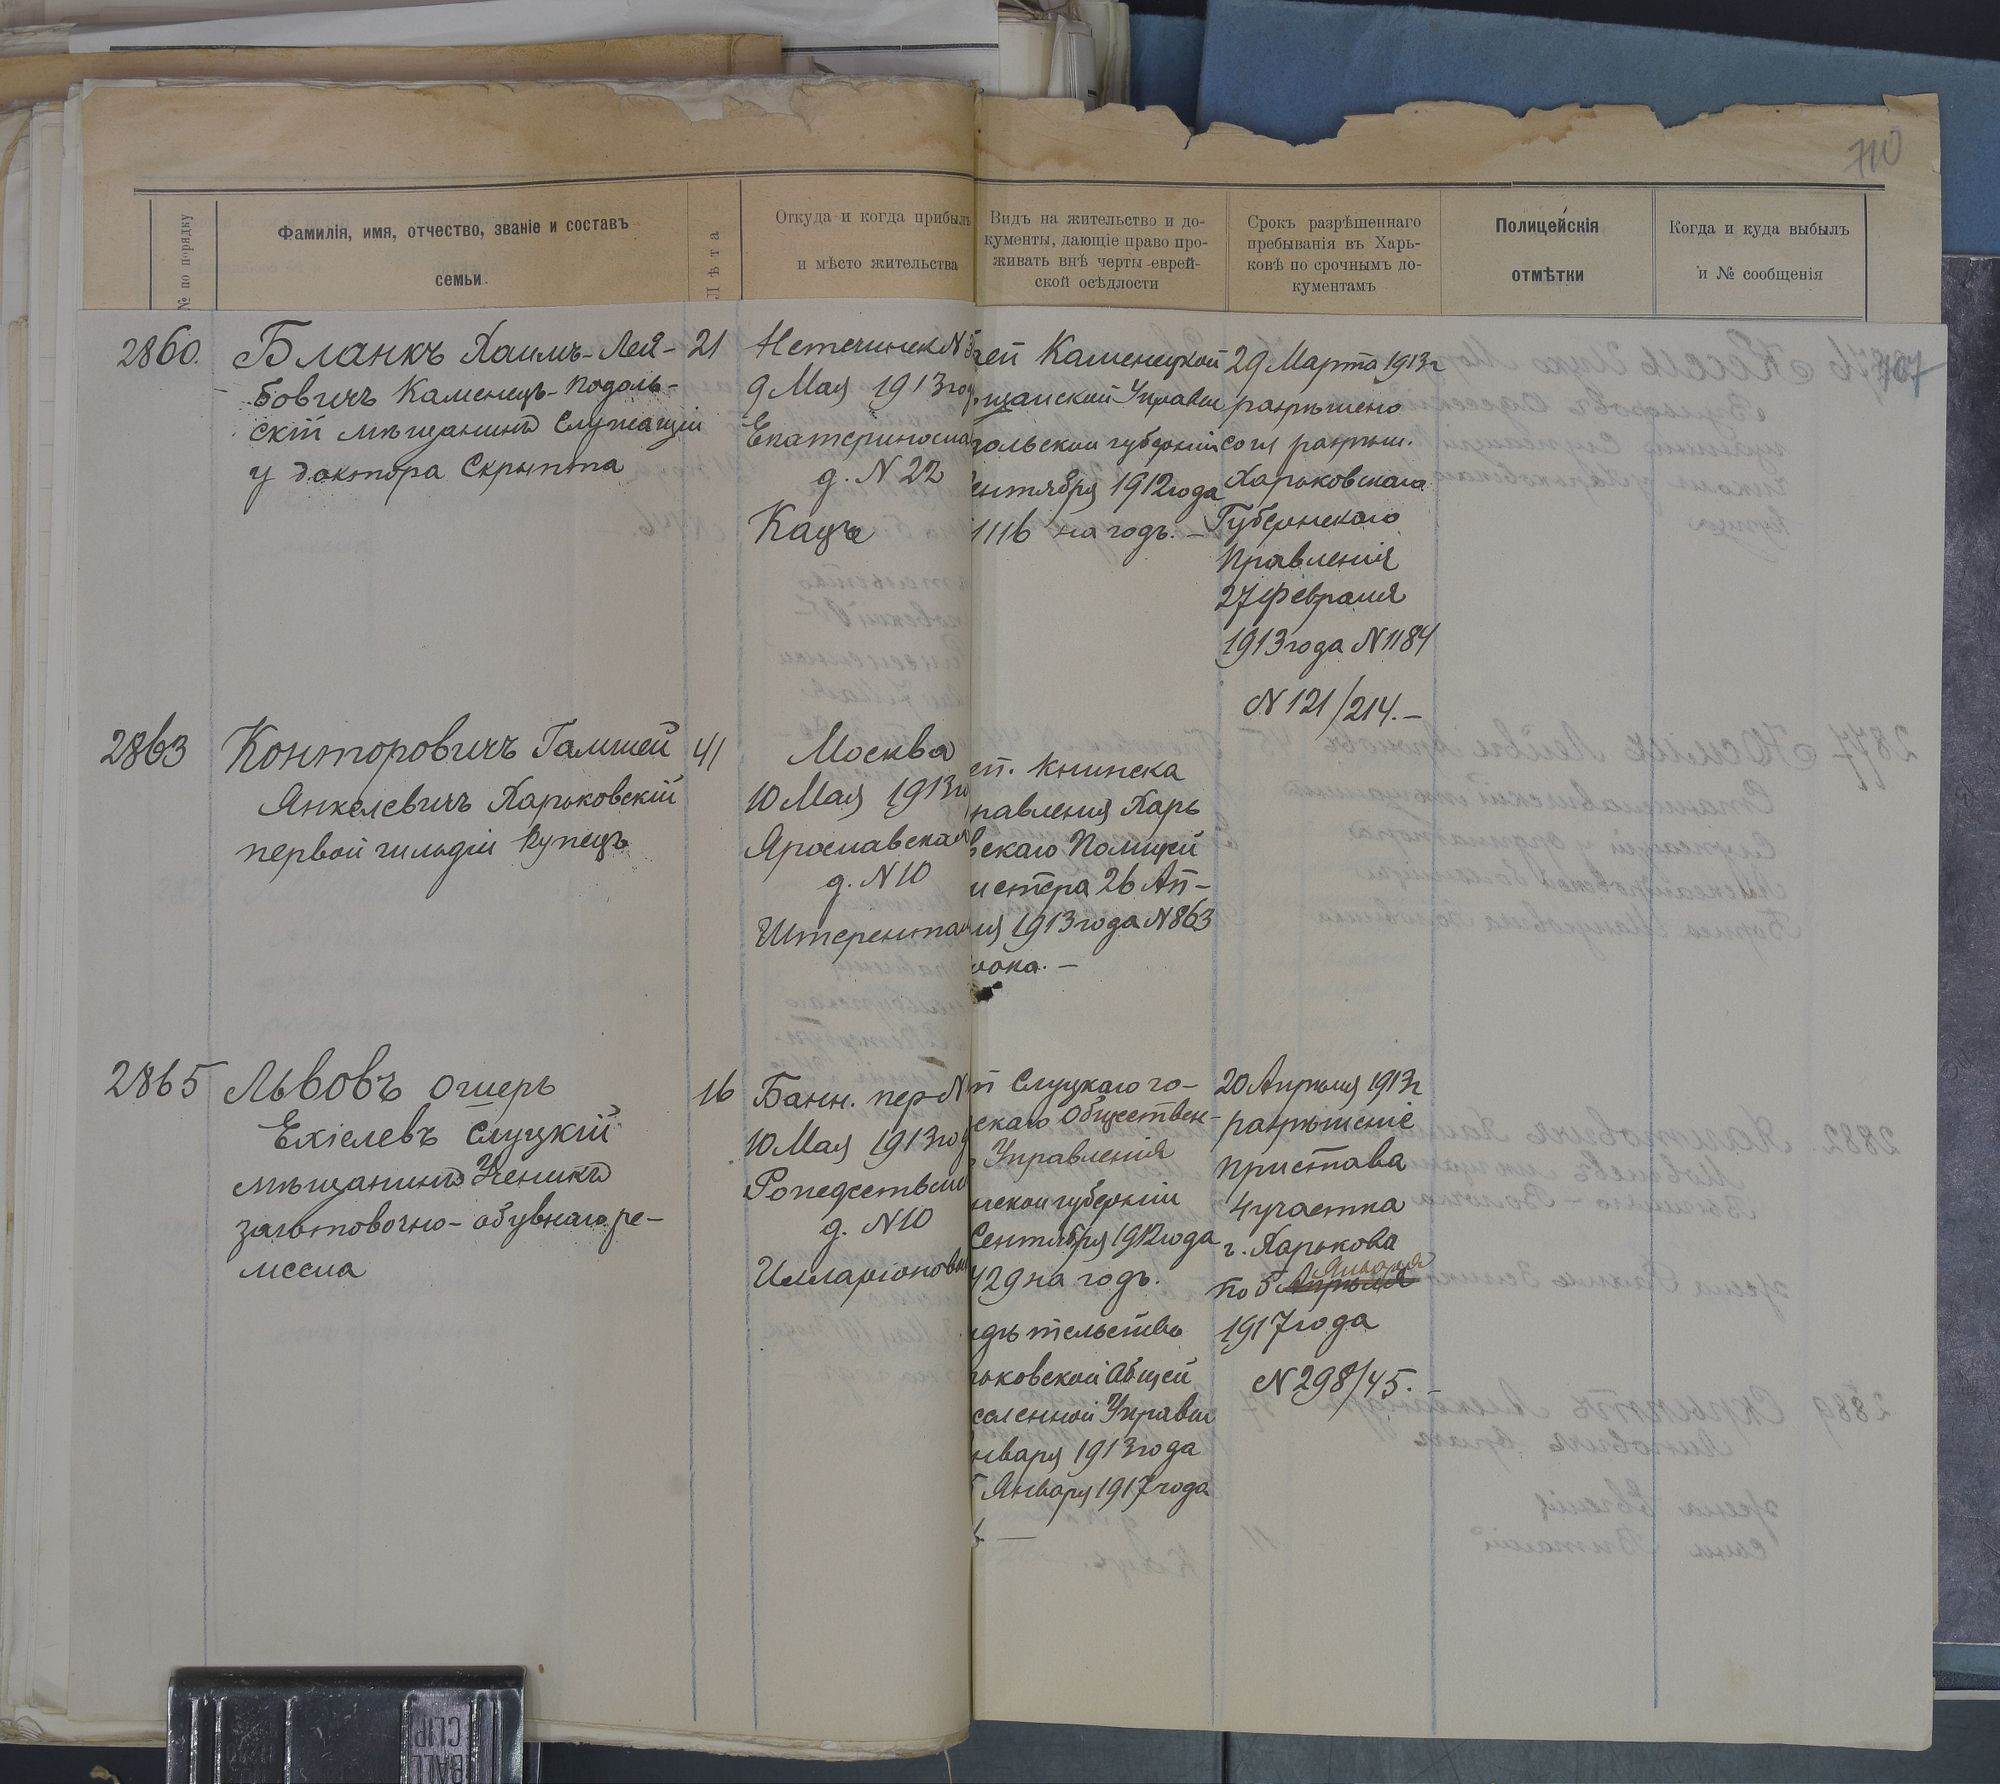 710
№ по порядку
Фамилія, имя, отчество, званіе и составъ
семьи.
Лѣта
Откуда и когда прибылъ
и мѣсто жительства
Видъ на жительство и до-
кументы, дающіе право про-
живать внѣ черты еврей-
ской осѣдлости
Срокъ разрѣшеннаго
пребыванія въ Харь-
ковѣ по срочнымъ до-
кументамъ
Полицейскія
отмѣтки
Когда и куда выбылъ
и № сообщенія
707
2860.
Бланкъ Хаимъ-Лей-
бовичъ Каменецъ-Подоль-
скій мѣщанинъ Служащій
у доктора Скрыпта
21
Нетечинск N 5
9 Мая 1913 год
Екатериносла
д. N 22
Кацъ
ей Каменецкой
щанской Управы
ольской губерніи
ентября 1912 года
1116 на годъ. —
29 Марта 1913 г
разрѣшено
согл разрѣш.
Харьковскаго
Губернскаго
Правленія
27 Февраля
1913 года N 1184
N 121/214. —
2863
Конторовичъ Гамшей
Янкелевичъ Харьковскій
первой гильдіи Купецъ
41
Москва
10 Мая 1913 го
Ярославская
д. N 10
Штерента
еп. книжка
равленія Харь
вскаго Полицей
местера 26 Ап-
ля 1913 года N 863
рока. —
2865
Львовъ Ошеръ
Ехіелевъ Слуцкій
мѣщанинъ Ученикъ
заготовочно-обувнаго ре-
месла
16
Банн. пер N
10 Мая 1913 год
Рождествен
д. N 10
Илларіоновы
п Слуцкаго го-
скаго Обществен-
Управленія
нской губерніи
Сентября 1912 года
429 на годъ.
дѣтельство
ьковской Общей
сленной Управы
нваря 1913 года
5 Января 1917 года
20 Апрѣля 1913 г
разрѣшеніе
Пристава
4 участка
г. Харькова
Января
по 5 Апрѣля
1917 года
N 298/45. —